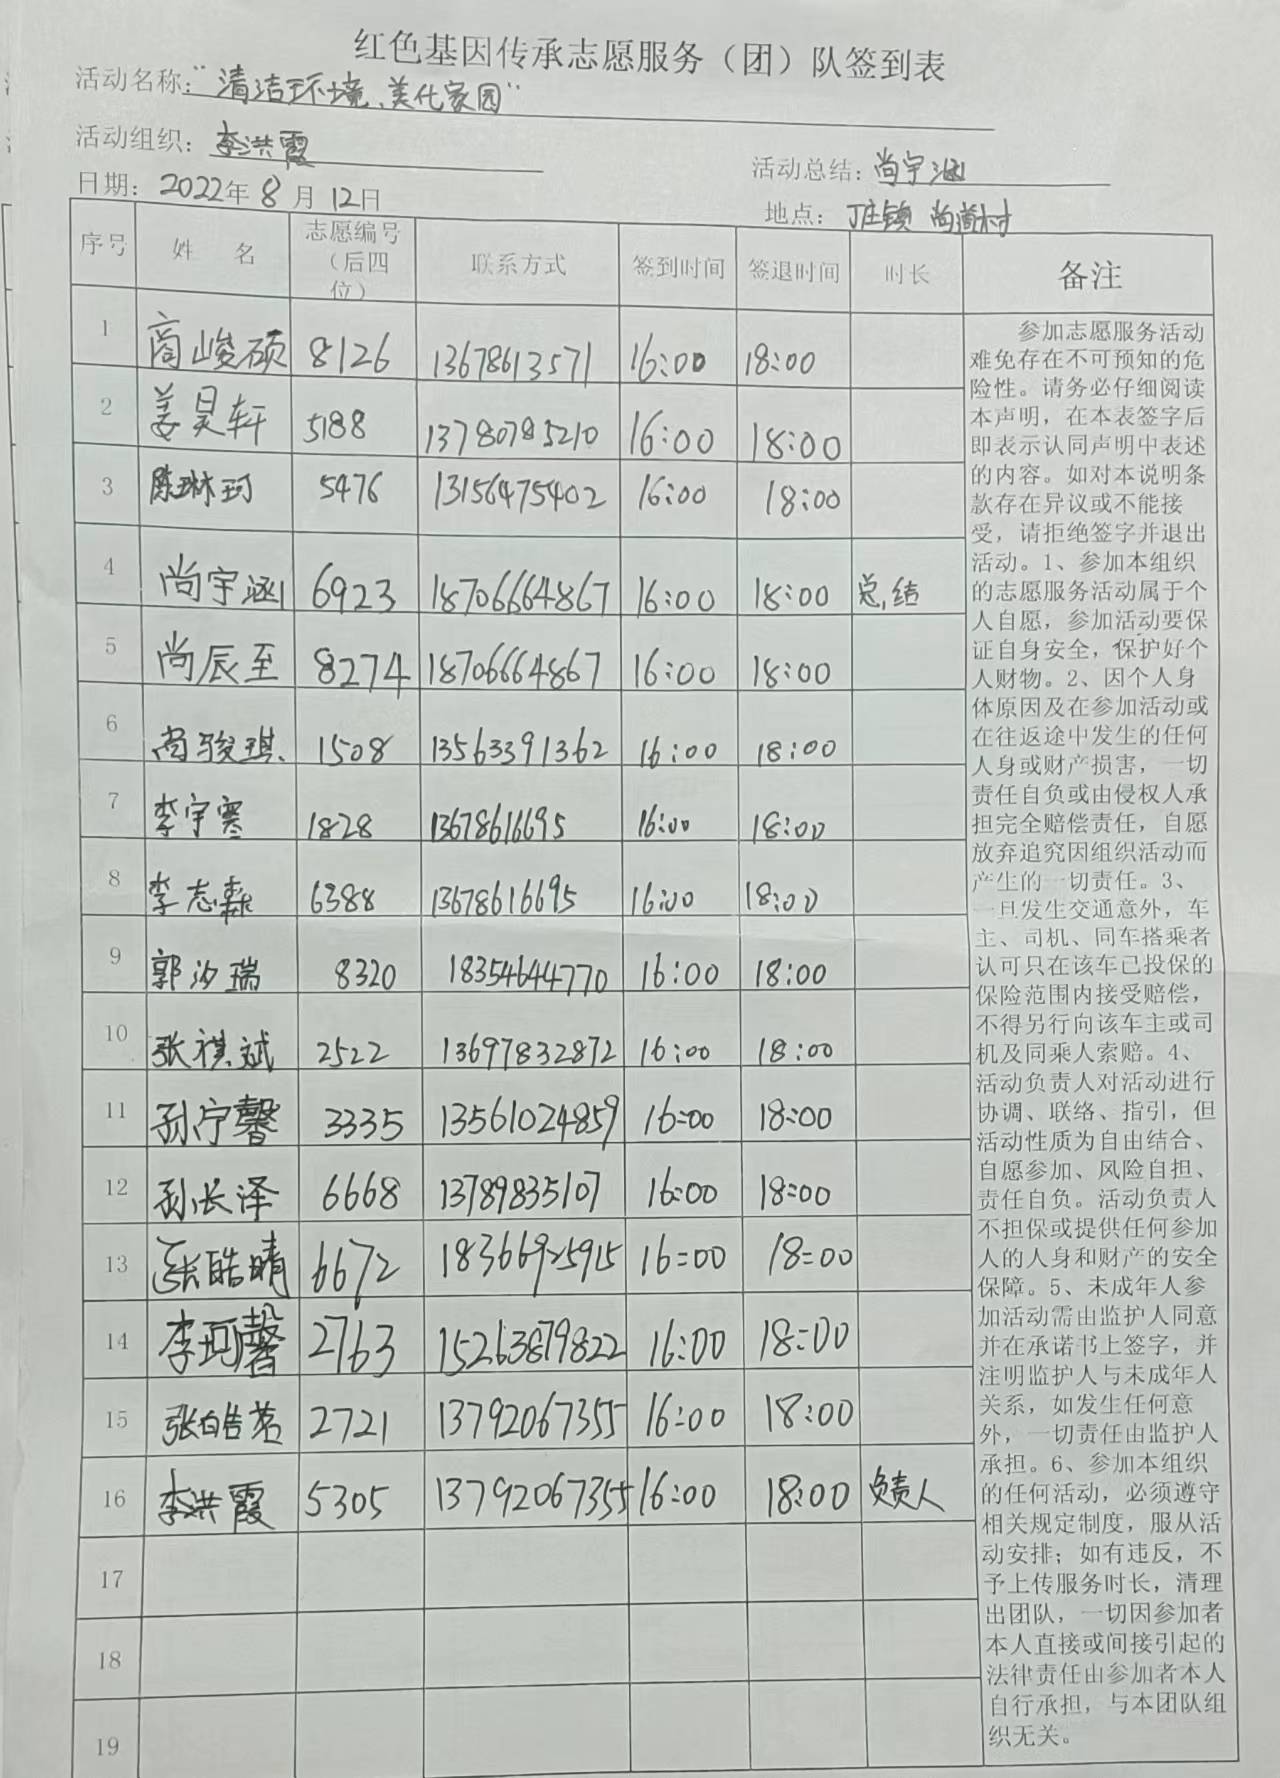 红色基因传承志愿服务（团）队签到表
活动名称："清洁环境、美化家园"
活动组织：李洪霞
活动总结：尚宇涵
日期：2022年8月12日
地点：丁庄镇 尚道村
序号 姓 名 志愿编号（后四位） 联系方式 签到时间 签退时间 时长 备注
1 商峻硕 8126 13678613571 16:00 18:00
2 姜昊轩 5188 13780785210 16:00 18:00
3 陈琳珂 5476 13156475402 16:00 18:00
4 尚宇涵 6923 18706664867 16:00 18:00 总结
5 尚辰至 8274 18706664867 16:00 18:00
6 尚骏琪 1508 13563391362 16:00 18:00
7 李宇寒 1828 13678616695 16:00 18:00
8 李志森 6388 13678616695 16:00 18:00
9 郭汐瑞 8320 18354644770 16:00 18:00
10 张祺斌 2522 13697832872 16:00 18:00
11 孙宁馨 3335 13561024859 16:00 18:00
12 孙长泽 6668 13789835107 16:00 18:00
13 张皓晴 6672 18366925915 16:00 18:00
14 李珂馨 2763 15263879822 16:00 18:00
15 张皓茗 2721 13792067355 16:00 18:00
16 李洪霞 5305 13792067355 16:00 18:00 负责人
17
18
19
参加志愿服务活动
难免存在不可预知的危
险性。请务必仔细阅读
本声明，在本表签字后
即表示认同声明中表述
的内容。如对本说明条
款存在异议或不能接
受，请拒绝签字并退出
活动。1、参加本组织
的志愿服务活动属于个
人自愿，参加活动要保
证自身安全，保护好个
人财物。2、因个人身
体原因及在参加活动或
在往返途中发生的任何
人身或财产损害，一切
责任自负或由侵权人承
担完全赔偿责任，自愿
放弃追究因组织活动而
产生的一切责任。3、
一旦发生交通意外，车
主、司机、同车搭乘者
认可只在该车已投保的
保险范围内接受赔偿，
不得另行向该车主或司
机及同乘人索赔。4、
活动负责人对活动进行
协调、联络、指引，但
活动性质为自由结合、
自愿参加、风险自担、
责任自负。活动负责人
不担保或提供任何参加
人的人身和财产的安全
保障。5、未成年人参
加活动需由监护人同意
并在承诺书上签字，并
注明监护人与未成年人
关系，如发生任何意
外，一切责任由监护人
承担。6、参加本组织
的任何活动，必须遵守
相关规定制度，服从活
动安排；如有违反，不
予上传服务时长，清理
出团队，一切因参加者
本人直接或间接引起的
法律责任由参加者本人
自行承担，与本团队组
织无关。